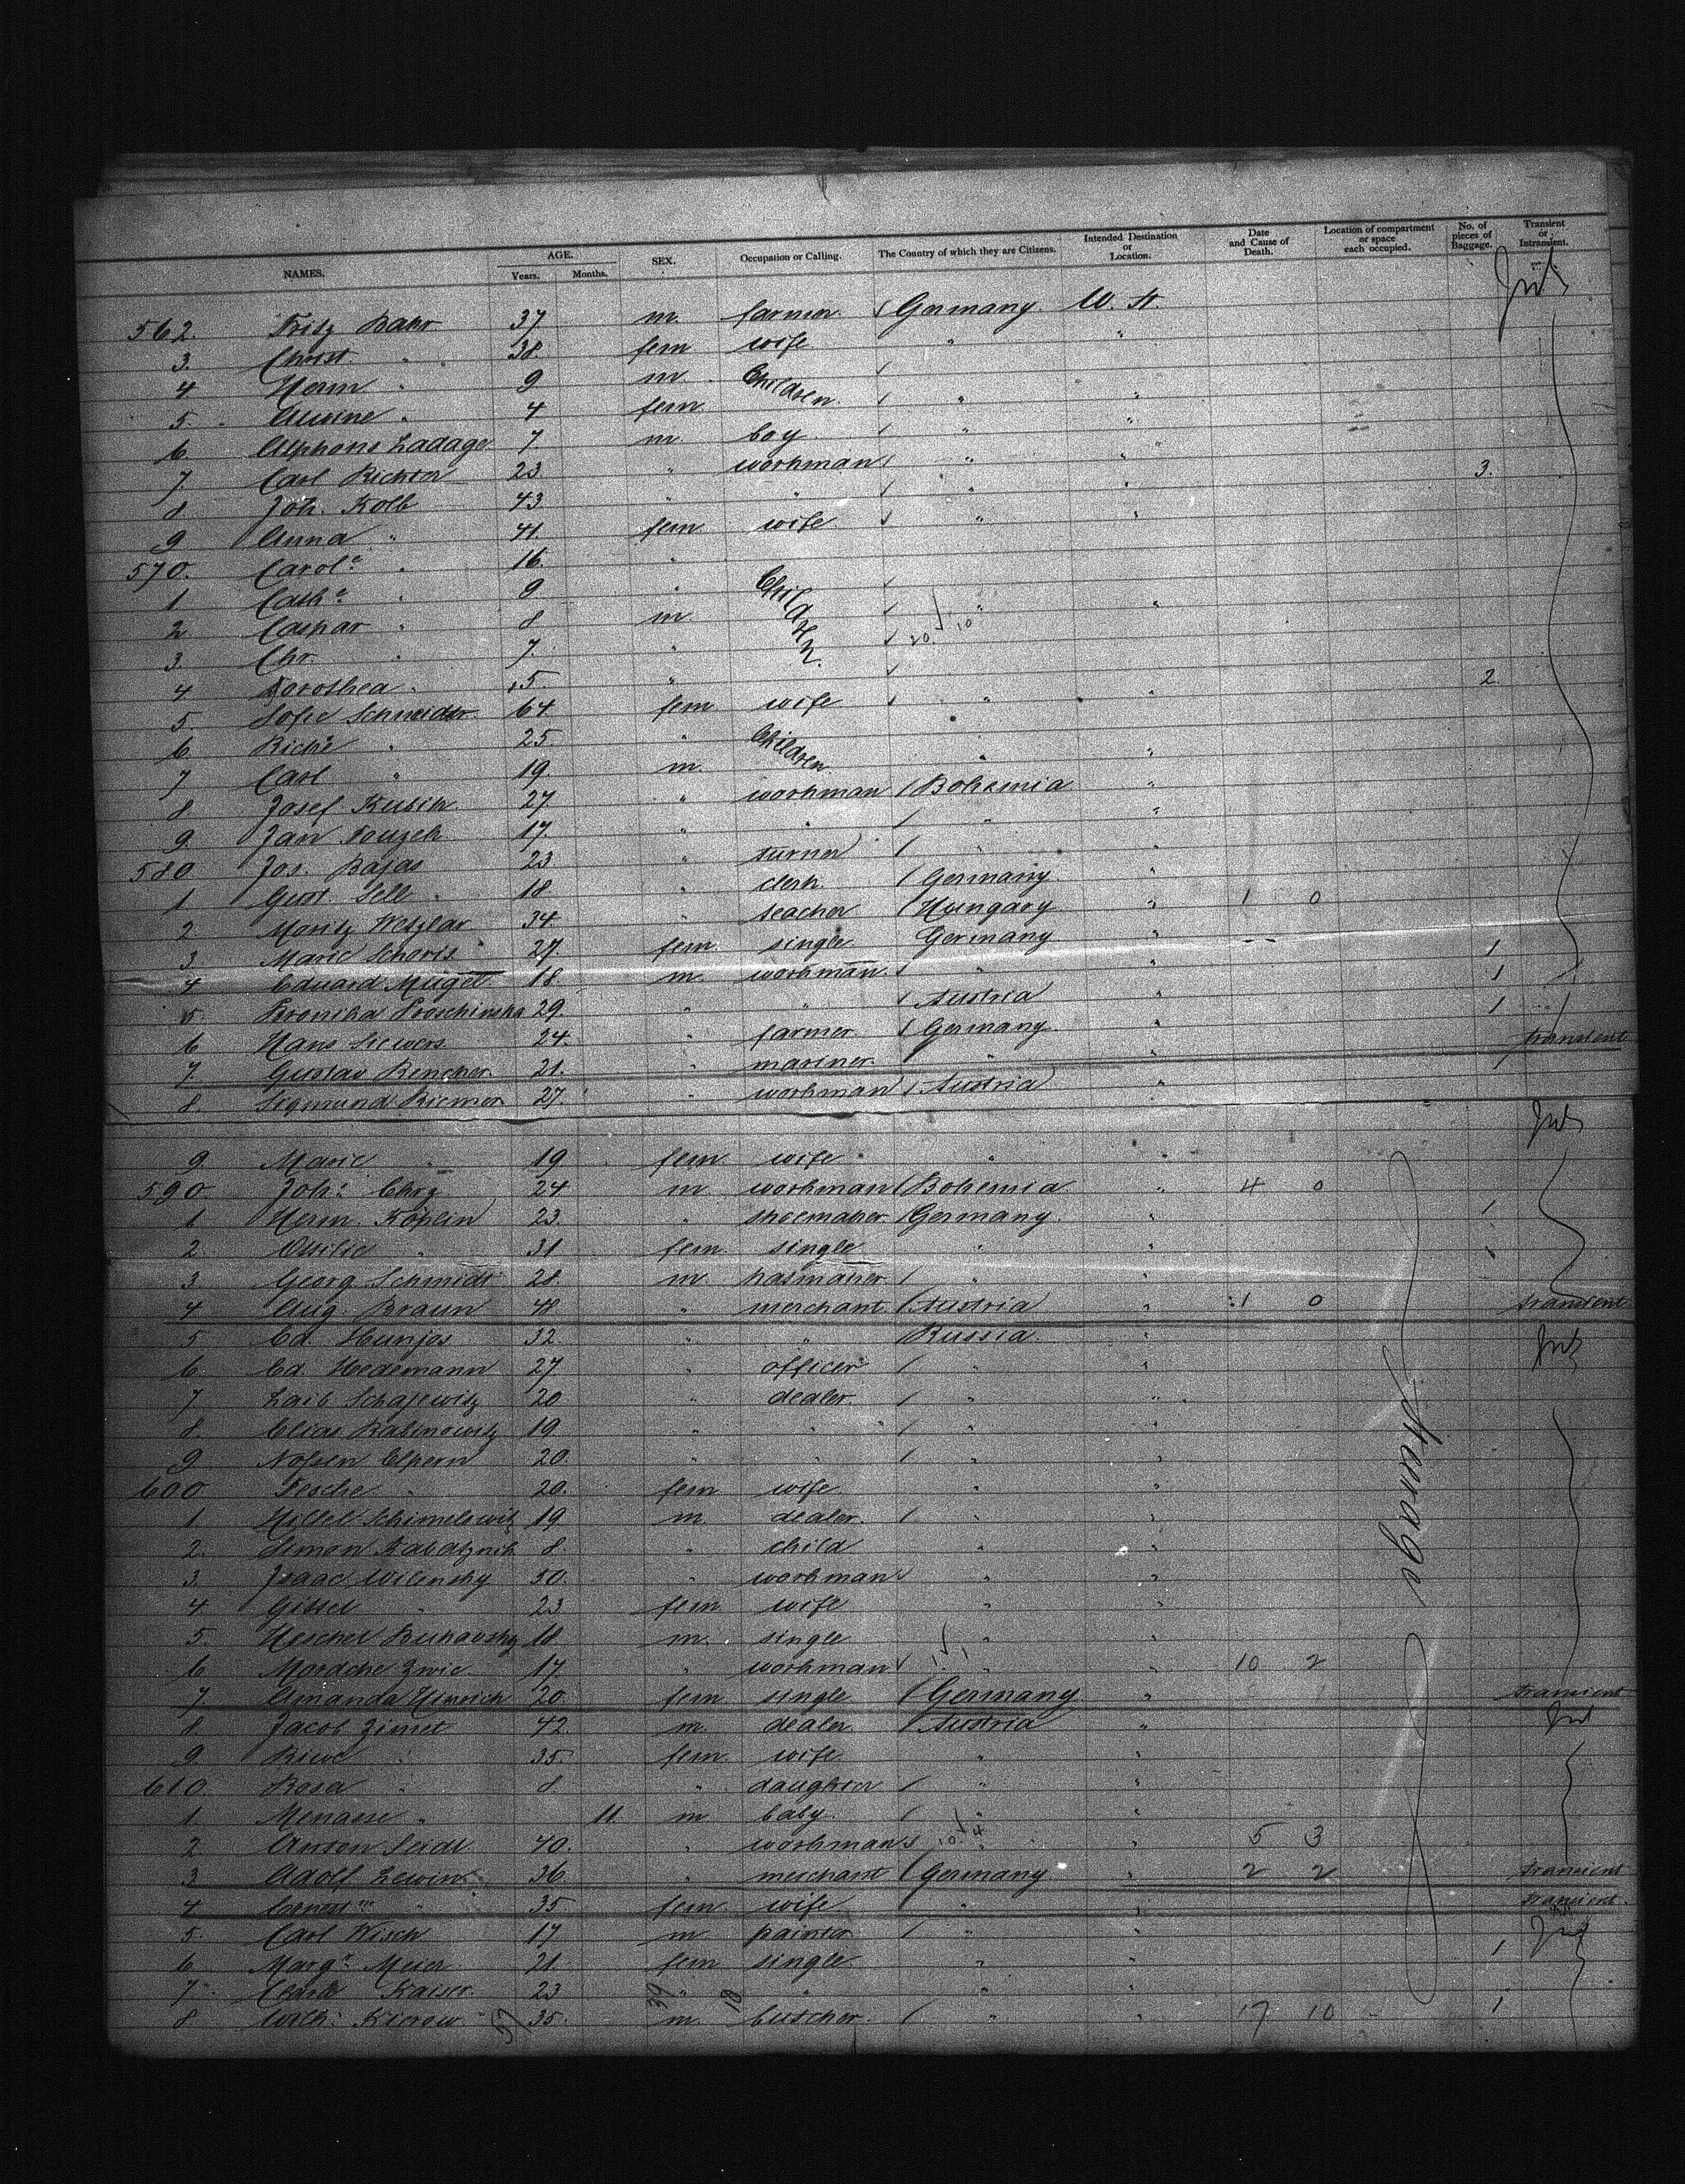 NAMES. AGE. Years. Months. SEX. Occupation or Calling. The Country of which they are Citizens. Intended Destination or Location. Date and Cause of Death. Location of compartment or space each occupied. No. of pieces of Baggage. Transient or Intransient.
562. Fritz Bahr 37 m. farmer Germany. U. St.
3. Christ " 38 fem wife " "
4 Herm " 9 m. Children
5. Alwine " 4 fem " "
6 Alphons Ladage 7 m. boy " "
7. Carl Richter 23 " workman " " 3.
8 Joh. Kolb 43 " " " "
9 Anna " 41 fem wife " "
570. Carol.e " 16. "
1 Cath.e " 9 " Children " "
2 Caspar " 8 m. 20 10
3. Chr. " 7. "
4 Dorothea " 5 " " 2
5 Sofie Schneider 64 fem wife "
6. " 25. " Children " "
7 Carl " 19. m. "
8. Josef Kubik 27 " workman Bohemia "
9 Jan 17. " " " "
580 Jos. Bajas 23 " turner " "
1 Gust. Sell 18 " clerk Germany " 1 0
2. Moritz Wetzlar 34. " teacher Hungary "
3 Marie Schoris 27. fem. single Germany " 1
4 Eduard Mugel 18. m. workman " " 1
5. 29. " " Austria " 1
6 Hans Siewers 24. " farmer Germany "
7. Gustav Rencher 21. " mariner " " 1 transient
8. Sigmund Riemer 27. " workman Austria "
9. Marie " 19 fem wife " "
590 Joh: 24 m workman Bohemia " 4 0
1 Herm. Köplin 23. " shoemaker Germany. " 1
2. Ottilie " 31 fem. single " "
3 Georg Schmidt 28. m. hatmaker " "
4 Aug. Braun 48 " merchant Austria " 1 0 transient
5 Ed. Hunjes 32. " " Russia "
6. Ed. Hedemann 27 " officer " "
7 Laib Schajewitz 20 " dealer. " "
8. Elias Rabinowitz 19. " " " "
9. Elpern 20. " " " "
600 Pesche " 20. fem wife " "
1 Hillel Schimelewitz 19 m. dealer " "
2. Simon 8. " child " "
3. Isaac Wilensky 50. " workman " "
4. Gittel " 23 fem. wife " "
5. Heschel 18 m. single " "
6 Mordche Zwie 17 " workman " " 10 2
7. Amanda Hinrich 20. fem single Germany " transient
8. Jacob Zimet 42 m. dealer Austria "
9. Riwe " 35. fem. wife " "
610. Rosa " 8. " daughter " "
1 Menasse " 11. m baby. " "
2. Anton Seidl 40. " workman 10 4 " 5 3
3 Adolf Lewin 36 " merchant Germany " 2 2 transient
4 " 35 fem wife " " transient
5. Carl Wisch 17 m. painter " "
6 Marg.e Meier 21 fem single " " 1
7. Kaiser 23 " " " "
8 Wilh: Kierow 35. m. butcher " " 17 10 1
Steerage